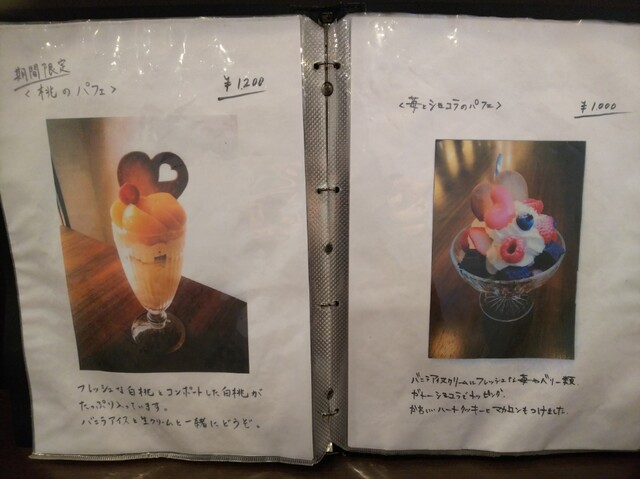 期間限定
<桃のパフェ>
¥1,200
フレッシュな白桃とコンポートした白桃が
たっぷり入ってます。
バニラアイスと生クリームと一緒にどうぞ。
<苺とショコラのパフェ>
¥1,000
バニラアイスクリームにフレッシュな苺やベリー類
ガトーショコラでトッピング。
かわいいハートクッキーとマカロンもつけました。